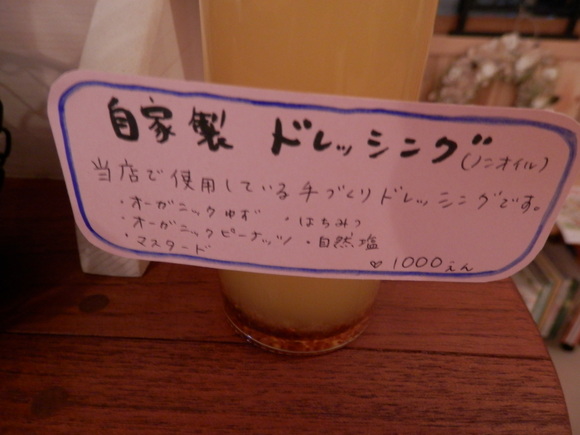 自家製 ドレッシング(ノンオイル)
当店で使用している手づくりドレッシングです。
・オーガニックゆず ・はちみつ
・オーガニックピーナッツ ・自然塩
・マスタード
♡1000えん